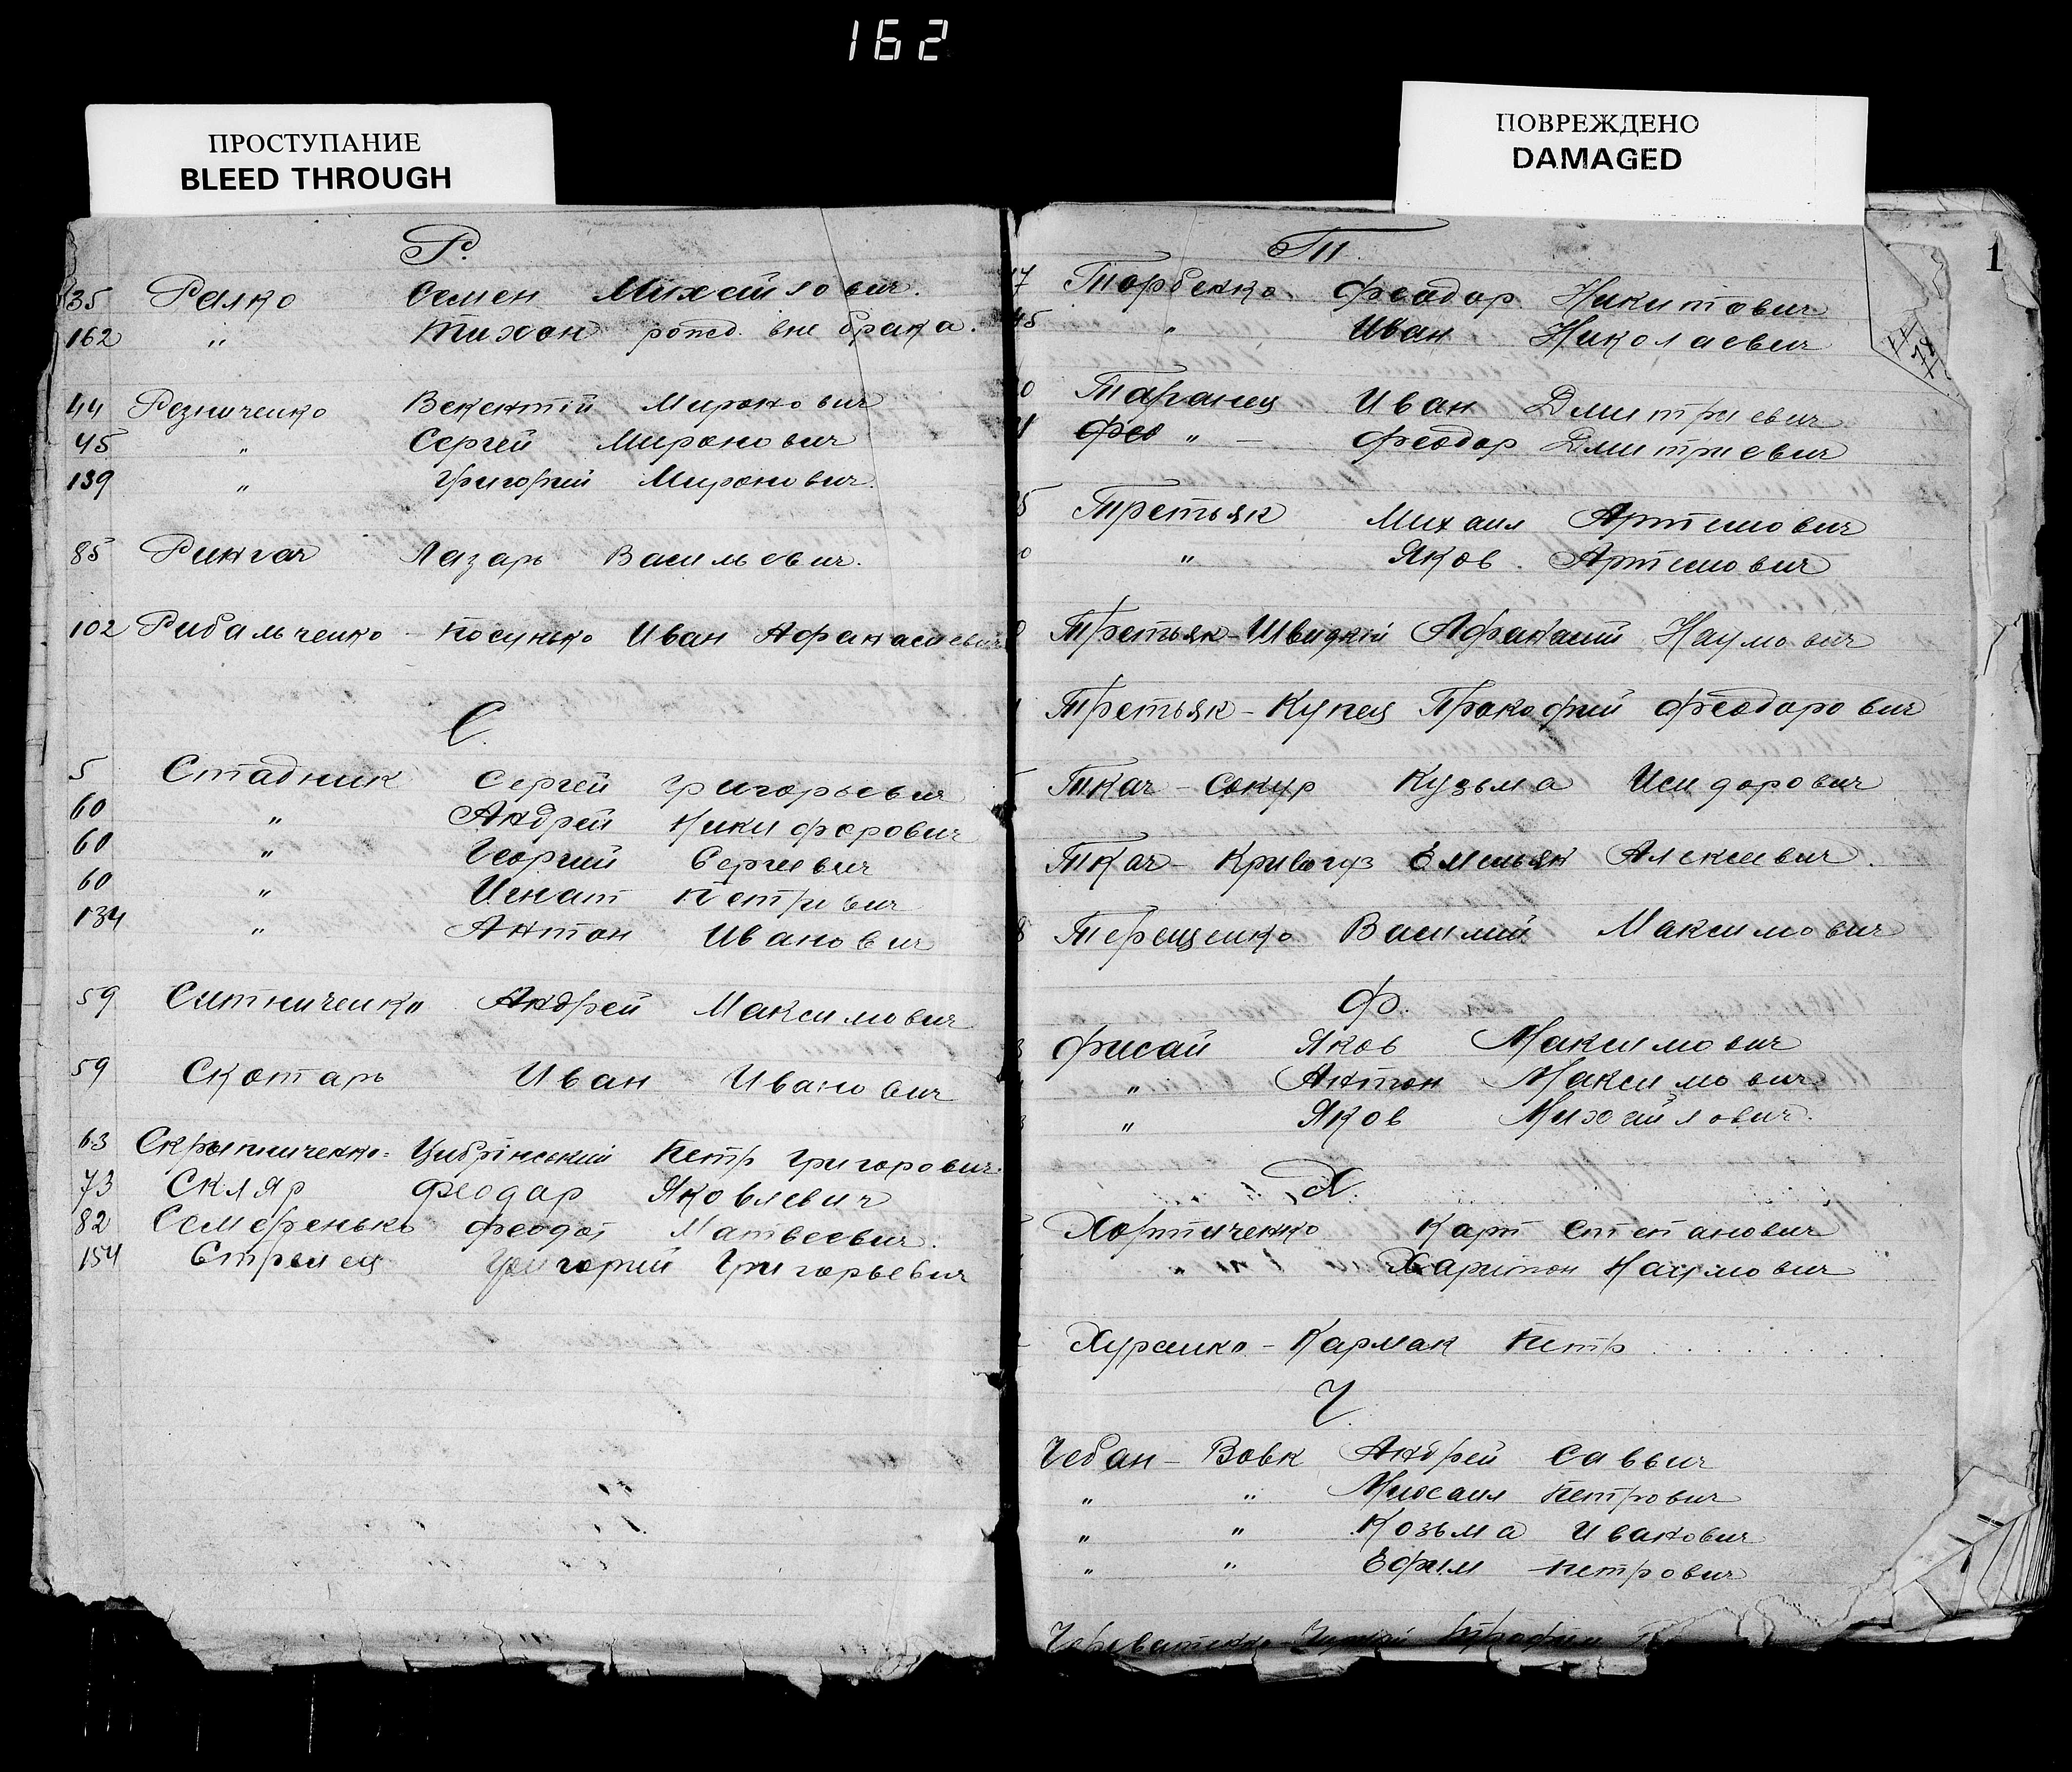 162
ПРОСТУПАНИЕ
BLEED THROUGH
ПОВРЕЖДЕНО
DAMAGED
Р.
35 Ралко Семен Михайлович.
162 " Тихон рожд. вне брака.
44 Резниченко Векентій Миронович
45 " Сергей Миронович
139 " Григорий Миронович.
85 Рингач Лазарь Васильевич.
102 Рибальченко Косунько Иван Афанасиевич
С.
5 Стадник Сергей Григорьевич
60 " Андрей Никифорович
60 " Георгий Сергиевич
60 " Игнат Петрович
134 " Антон Иванович
59 Ситниченко Андрей Максимович
59 Скотарь Иван Иванович
63 Скрыпниченко = Цибрінський Петр Григорович.
73 Скляр Феодар Яковлевич
82 Семеренько Феодот Матвеевич.
154 Стрелец Григорий Григорьевич
1
Т.
7 Торбенко Феодор Никитович
45 " Иван Николаевич
0 Таранец Иван Дмитриевич
Фео " — Феодор Дмитриевич
5 Третьяк Михаил Артемович
0 " Яков Артемович
Третьяк - Швидкій Афанасий Наумович
Третьяк - Купец Прокофий Феодорович
Ткач - Сокур Кузьма Исидорович
Ткач - Кривогуз Емельян Алексеевич.
8 Терещенко Василий Максимович
Ф.
3 Фисай Яков Максимович
" Антон Максимович
3 " Яков Михайлович.
Х.
Хортиченко Карп Степанович
Харитон Наумович
Хурсенко - Кармак Петр . . . . . . .
Ч.
Чебан - Вовк Андрей Саввич
" " Михаил Петрович
" " Козьма Иванович
" " Ефим Петрович